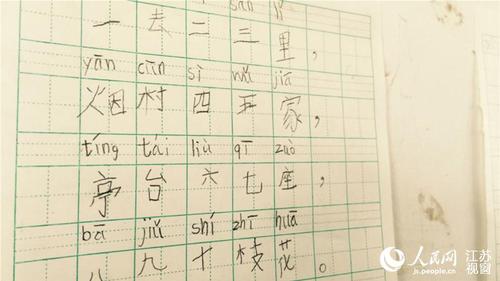 sān lǐ
一去二三里，
yān cūn sì wǔ jiā
烟村四五家，
tíng tái liù qī zuò
亭台六七座，
bā jiǔ shí zhī huā
八九十枝花。
人民网
js.people.cn
江苏
视窗